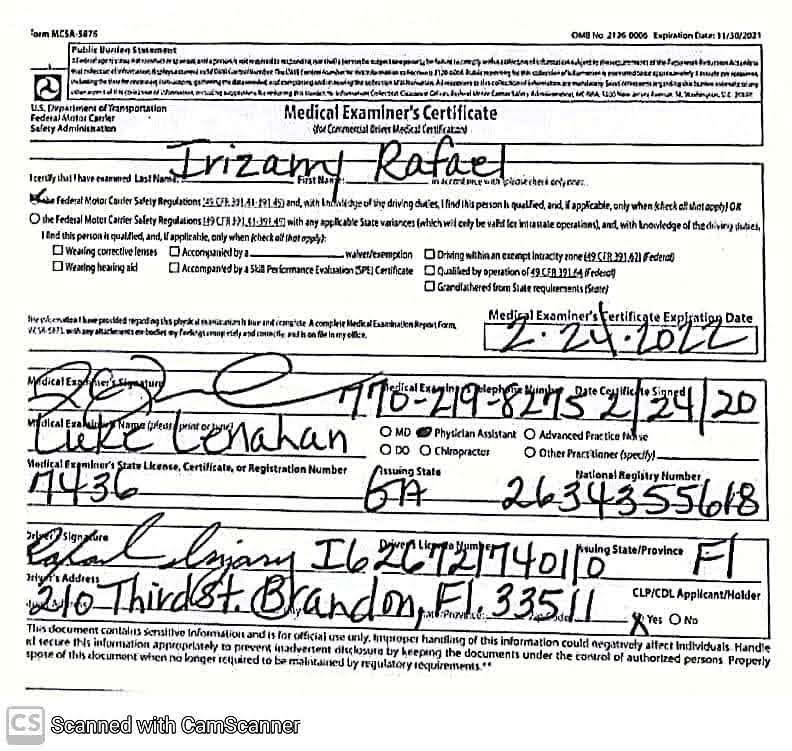 Form MCSA-5876
OMB No. 2126-0006 Expiration Date: 11/30/2021
Public Burden Statement
U.S. Department of Transportation
Federal Motor Carrier
Safety Administration
Medical Examiner's Certificate
(for Commercial Driver Medical Certification)
I certify that I have examined Last Name: Irizarry First Name: Rafael in accordance with (please check only one):
the Federal Motor Carrier Safety Regulations (49 CFR 391.41-391.49) and, with knowledge of the driving duties, I find this person is qualified, and, if applicable, only when (check all that apply) OR
the Federal Motor Carrier Safety Regulations (49 CFR 391.41-391.49) with any applicable State variances (which will only be valid for intrastate operations), and, with knowledge of the driving duties,
I find this person is qualified, and, if applicable, only when (check all that apply):
Wearing corrective lenses Accompanied by a waiver/exemption Driving within an exempt intracity zone (49 CFR 391.62) (Federal)
Wearing hearing aid Accompanied by a Skill Performance Evaluation (SPE) Certificate Qualified by operation of 49 CFR 391.64 (Federal)
Grandfathered from State requirements (State)
The information I have provided regarding this physical examination is true and complete. A complete Medical Examination Report Form,
MCSA-5875, with any attachments embodies my findings completely and correctly, and is on file in my office.
Medical Examiner's Certificate Expiration Date
2.24.2022
Medical Examiner's Signature Medical Examiner's Telephone Number Date Certificate Signed
770-219-8275 2/24/20
Medical Examiner's Name (please print or type)
Luke Lenahan
MD Physician Assistant Advanced Practice Nurse
DO Chiropractor Other Practitioner (specify)
Medical Examiner's State License, Certificate, or Registration Number Issuing State National Registry Number
7436 GA 2634355618
Driver's Signature Driver's License Number Issuing State/Province
I626721740110 Fl
Driver's Address CLP/CDL Applicant/Holder
210 Third St. Brandon, Fl. 33511
Yes No
This document contains sensitive information and is for official use only. Improper handling of this information could negatively affect individuals. Handle
and secure this information appropriately to prevent inadvertent disclosure by keeping the documents under the control of authorized persons. Properly
dispose of this document when no longer required to be maintained by regulatory requirements.**
CS Scanned with CamScanner